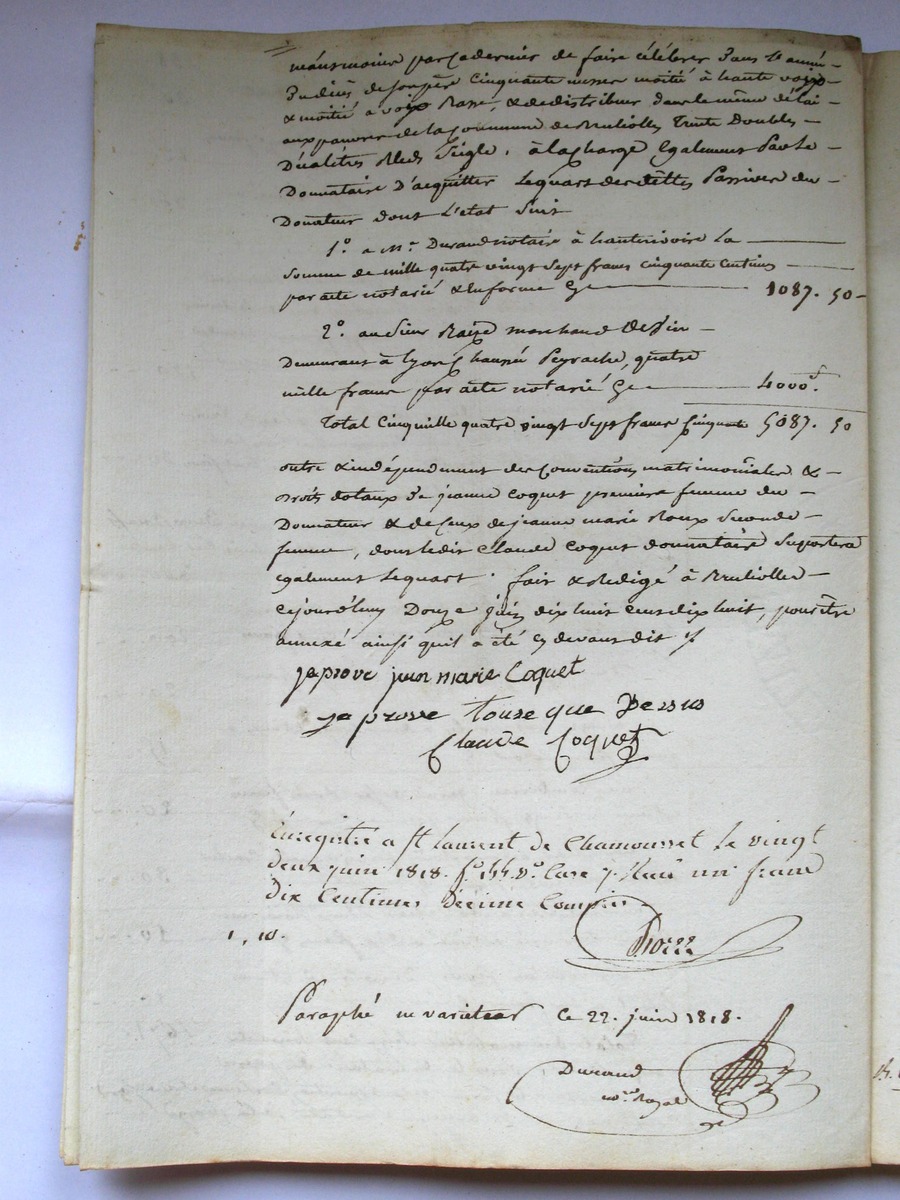 néanmoins par ce dernier de faire célébrer dans l'année
du décès de son père Cinquante messes moitié à haute voix
& moitié à voix Basse, & de distribuer dans le même délai
aux pauvres de la Commune de Brulioles Trente Doubles
Décalitres Bled Seigle, à la charge également par le
Donnataire D'acquitter le quart des dettes Passives du
Donateur dont L'état Suit
1.o a Mr. Durand notaire à hauterivoire la
Somme de mille quatre vingt Sept francs cinquante Centimes
par acte notarié & en forme Cy 1087. 50
2.o au Sieur marchand
Demeurant à Lyon Peyrache, quatre
mille francs par acte notarié Cy 4000.f
Total Cinq mille quatre vingt Sept francs Cinquante 5087. 50
outre & indépendamment des Conventions matrimoniales &
Droits dotaux de jeanne Coquet première femme du
Donnateur & de Ceux de jeanne marie Roux Seconde
femme, dont ledit Claude Coquet donnataire Suportera
également le quart. fait & Rédigé à Brulioles
Cejourd'huy Douze juin dix huit Cent dix huit, pour être
annexé ainsi qu'il a été Cy devant dit
japrove jean marie Coquet
je aprouve touse que Desus
Claude Coquet
Enregistré a St Laurent de Chamousset le vingt
deux juin 1818. f.o v.o Case 7. Reçu un franc
Dix Centimes Décime Compris
1, 10.
Paraphé ne varietur Ce 22. juin 1818.
Durand
no.re Royal